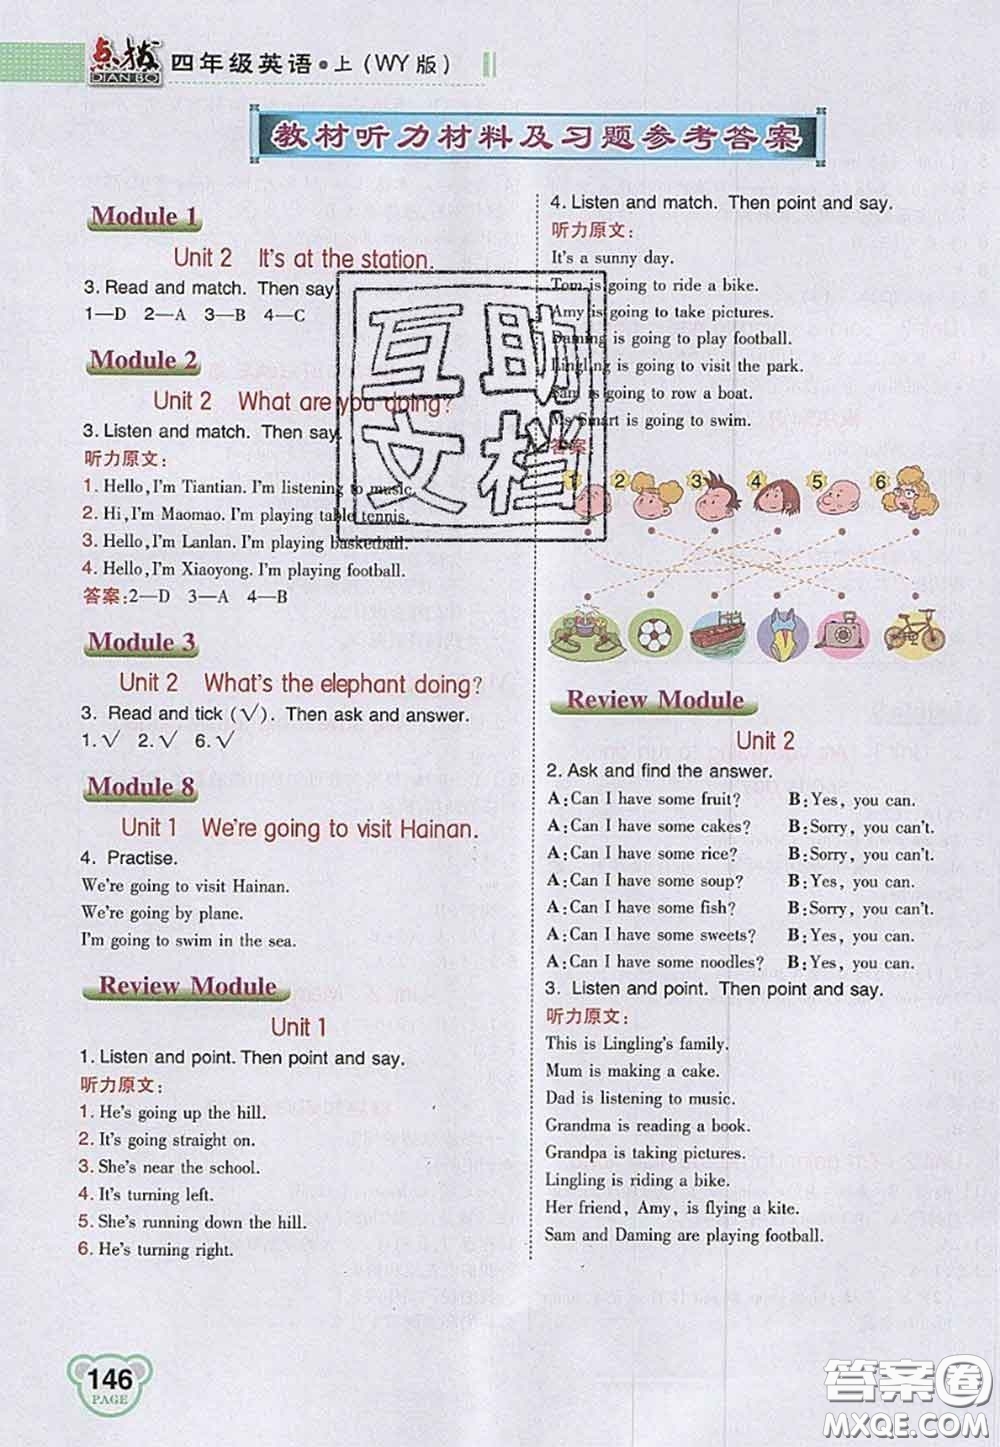 点拨 DIAN BO 四年级英语·上(WY版)
教材听力材料及习题参考答案
Module 1
Unit 2 It's at the station.
3. Read and match. Then say.
1—D 2—A 3—B 4—C
Module 2
Unit 2 What are you doing?
3. Listen and match. Then say.
听力原文:
1. Hello, I'm Tiantian. I'm listening to music.
2. Hi, I'm Maomao. I'm playing table tennis.
3. Hello, I'm Lanlan. I'm playing basketball.
4. Hello, I'm Xiaoyong. I'm playing football.
答案:2—D 3—A 4—B
Module 3
Unit 2 What's the elephant doing?
3. Read and tick (√). Then ask and answer.
1.√ 2.√ 6.√
Module 8
Unit 1 We're going to visit Hainan.
4. Practise.
We're going to visit Hainan.
We're going by plane.
I'm going to swim in the sea.
Review Module
Unit 1
1. Listen and point. Then point and say.
听力原文:
1. He's going up the hill.
2. It's going straight on.
3. She's near the school.
4. It's turning left.
5. She's running down the hill.
6. He's turning right.
4. Listen and match. Then point and say.
听力原文:
It's a sunny day.
Tom is going to ride a bike.
Amy is going to take pictures.
Daming is going to play football.
Lingling is going to visit the park.
Sam is going to row a boat.
Ms Smart is going to swim.
答案
1 2 3 4 5 6
Review Module
Unit 2
2. Ask and find the answer.
A:Can I have some fruit? B:Yes, you can.
A:Can I have some cakes? B:Sorry, you can't.
A:Can I have some rice? B:Sorry, you can't.
A:Can I have some soup? B:Yes, you can.
A:Can I have some fish? B:Sorry, you can't.
A:Can I have some sweets? B:Yes, you can.
A:Can I have some noodles? B:Yes, you can.
3. Listen and point. Then point and say.
听力原文:
This is Lingling's family.
Mum is making a cake.
Dad is listening to music.
Grandma is reading a book.
Grandpa is taking pictures.
Lingling is riding a bike.
Her friend, Amy, is flying a kite.
Sam and Daming are playing football.
互助
文档
146
PAGE
答案圈
MXQE.COM